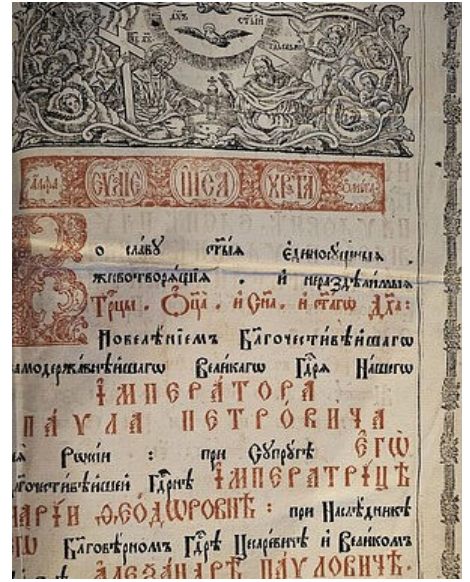 дх҃ъ ст҃ы́й
а҆́лфа є҆ѵⷢ҇лїе і҆и҃са хрⷭ҇та̀ ѡ҆ме́га
Во сла́вꙋ ст҃ы́ѧ є҆диносꙋ́щныѧ,
животворѧ́щїѧ, и҆ нераздѣ́лимыѧ
Трⷪ҇цы, Ѻ҆ц҃а̀, и҆ Сн҃а, и҆ ст҃а́гѡ Дх҃а:
Повелѣ́нїемъ Бл҃гочести́вѣйшагѡ
амодержа́внѣйшагѡ Вели́кагѡ Гдⷭ҇рѧ На́шегѡ
І҆МПЕРА́ТОРА
ПА́ѴЛА ПЕТРО́ВИЧА
їѧ̀ Рѡссі́и : при Сꙋпрꙋ́гѣ Є҆ГѠ̀
лгочести́вѣйшей Гдⷭ҇рнѣ І҆МПЕРАТРІ́ЦѢ
МАРІ́И Ѳ҆ЕОДѠРОВНѢ : при Наслѣ́дникѣ
гѡ̀ Бл҃говѣ́рномъ Гдⷭ҇рѣ Цесаре́вичѣ и҆ Вели́комъ
А҆ЛЕѮА́НДРѢ ПА́ѴЛОВИЧѢ.